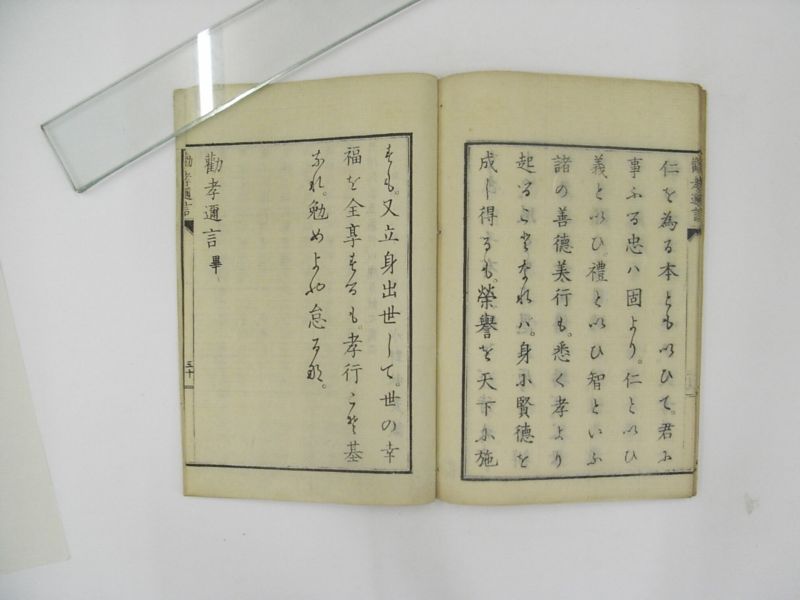 仁を為る本とも以ひて。君に
事ふる忠ハ固より。仁といひ
義といひ。禮といひ智といふ
諸の善德美行も。悉く孝より
起ることなれハ。身に賢德を
成し得るも。榮譽を天下に施
すも。又立身出世して。世の幸
福を全享するも。孝行こそ基
なれ。勉めよや怠るな。
勸孝邇言畢
勸孝邇言
勸孝邇言
三十